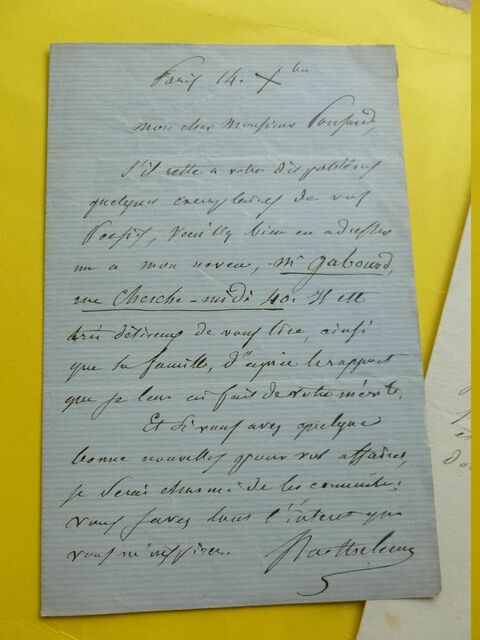 Paris 14. Xbre
mon cher Monsieur Ponsard,
s'il reste a votre disposition
quelques exemplaires de vos
Poesies, veuillez bien en adresser
un a mon neveu, Mr Gabourd,
rue Cherche-midi 40. Il est
très désireux de vous lire, ainsi
que sa famille, d'après le rapport
que je leur ai fait de votre mérite.
Et si vous avez quelque
bonne nouvelle pour vos affaires,
je serai charmé de les connaitre;
vous savez tout l'intéret que
vous m'inspirez.